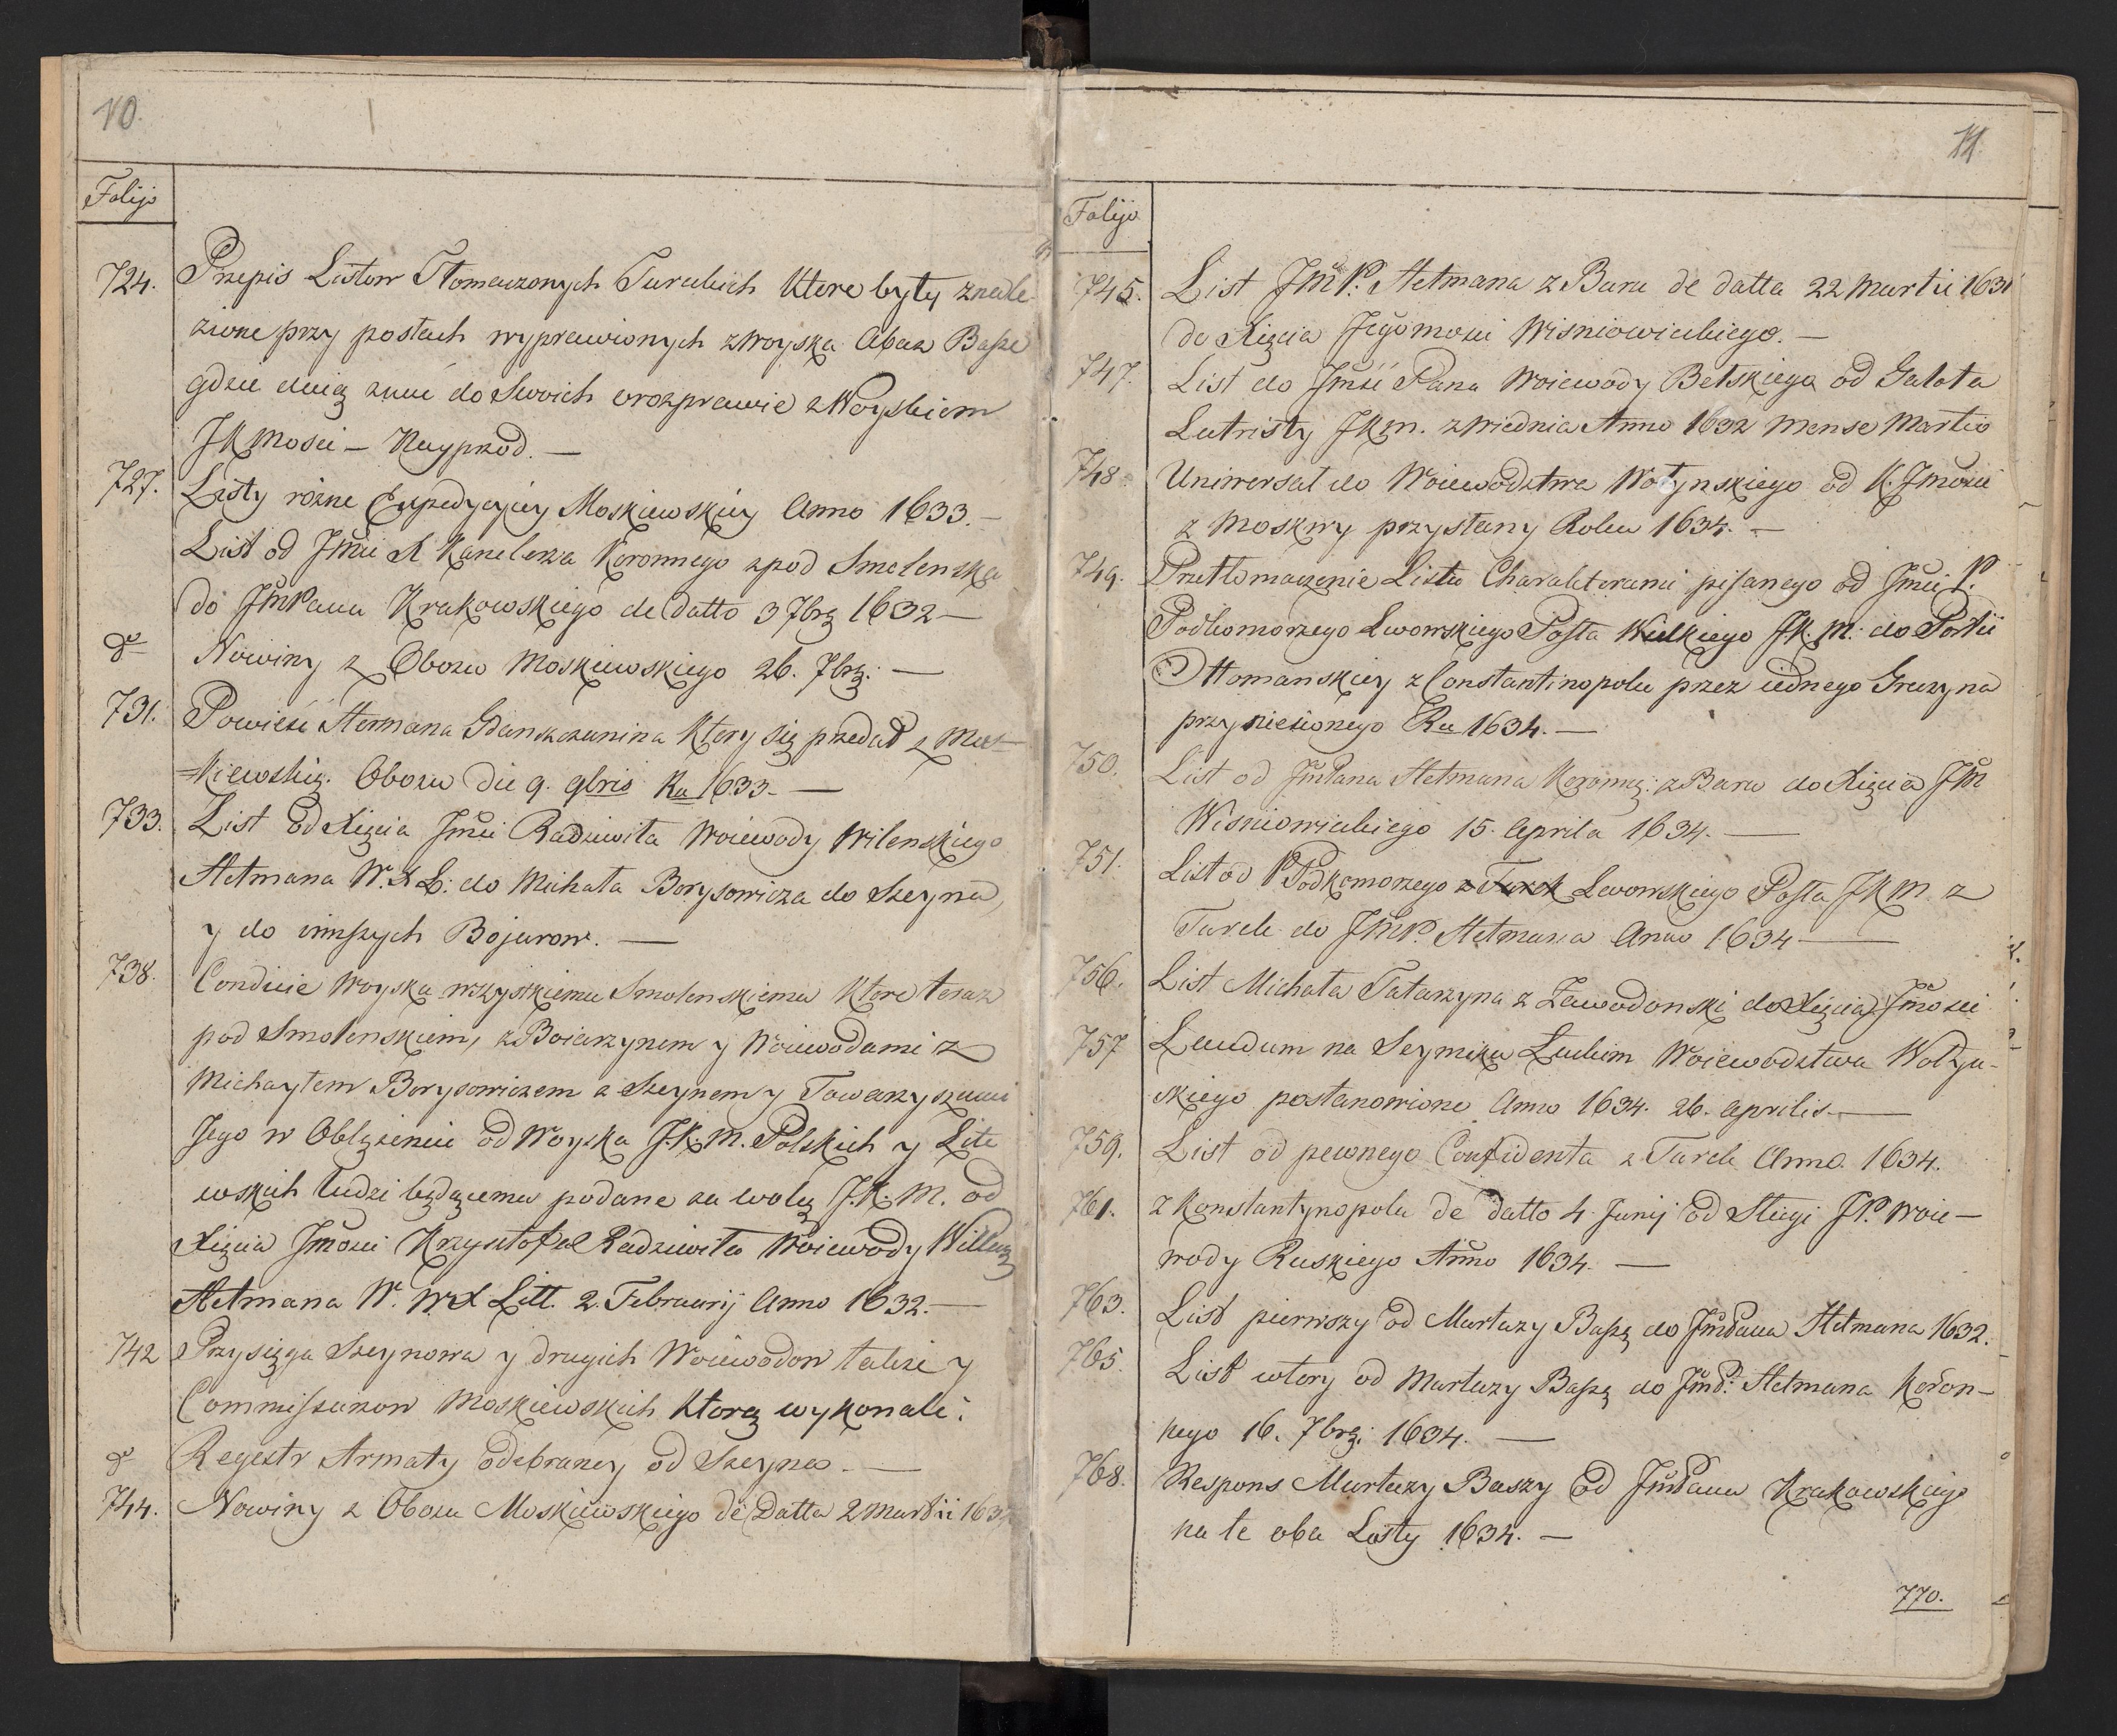 10.
Folijo
724. Przepis Listow Tłomaczonych Tureckich które były znale-
zione przy posłach wyprawionych z Woyska Abaza Basze
gdzie daią znać do Swoich o rozprawie z Woyskiem
JKMosci – Nayprzod. —
727. Listy rożne Expedycyiey Moskiewskiey Anno 1633. —
List od Jmci X Kanclerza Koronnego z pod Smolenska
do JmPana Krakowskiego de datto 3 7brẏ 1632 —
do Nowiny z Obozu Moskiewskiego 26. 7brẏ. —
731. Powieść Hermana Gdanszczanina ktory się przedał z Mos-
=kiewskiẏ. Obozu die 9. 9bris Ru 1633. —
733. List od Xięcia Jmci Radziwiła Woiewody Wilenskiego
Hetmana W. X L: do Michała Borysowicza do Szeyna,
y do innszych Bojarow. —
738. Condicie Woyska wszystkiemu Smolenskiemu które teraz
pod Smolenskiem, z Boiarzynem y Woiewodami z
Michayłem Borysowiczem a Szeynem y Towarzyszami
Jego w Oblężeniu od Woyska J.K.M. Polskich y Lite
wskich ludzi będącemu podane za wolą J.K.M. od
Xięcia Jmości Krzysztofa Radziwiła Woiewody Willeẏ
Hetmana W. WX Litt. 2. Februarij Anno 1632. —
742 Przysięga Szeynowa y drugich Woiewodow także y
Commissarzow Moskiewskich ktorą wykonali.
do Regestr Armaty odebraney od Szeyna. —
744. Nowiny z Obozu Moskiewskiego de Datta 2 Martii 163
11.
Folijo
745. List JmP. Hetmana z Baru de datta 22 Martii 1631
do Xięcia Jegomosci Wisniowieckiego. —
747. List do Jmści Pana Woiewody Bełskiego od Galota
Lutristy JKm. z Wiednia Anno 1632 Mense Martio
748. Uniwersał do Woiewodztwa Wołynskiego od K. Jmości
z Moskwy przysłany Roku 1634. —
749. Przetłomaczenie Listu Charakterami pisanego od Jmci P.
Podkomorzego Lwowskiego Posła Wielkiego JK.M: do Portii
Ottomanskiey z Constantinopolu przez iednego Gruzyna
przyniesionego Ru 1634. —
750. List od JmPana Hetmana Koronnẏ: z Baru do Xięcia Jm
Wisniowieckiego 15. Aprila 1634. —
751. List od P Podkomorzego z Turek Lwowskiego Posła JKM z
Turek do JmP. Hetmana Anno 1634 —
756. List Michała Tatarzyna z Zawodonski do Xięcia Jmości
757 Laudum na Seymiku Łuckim Woiewodztwa Wołyn-
skiego postanowione Anno 1634. 26. Aprilis —
759. List od pewnego Confidenta z Turek Anno 1634.
761. z Konstantynopolu de datto 4 Junij od Sługi JP. Woie-
wody Ruskiego Anno 1634. —
763. List pierwszy od Murtazy Baszẏ do JmPana Hetmana 1632.
765. List wtory od Murtazy Baszẏ do JmP: Hetmana Koron-
nego 16. 7brẏ: 1634. —
768. Respons Murtazy Baszy od JmPana Krakowskiego
na te oba Listy 1634. —
770.